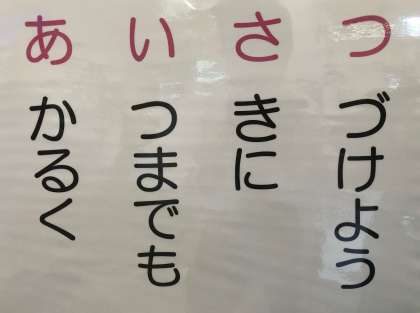 あかるく
いつまでも
さきに
つづけよう